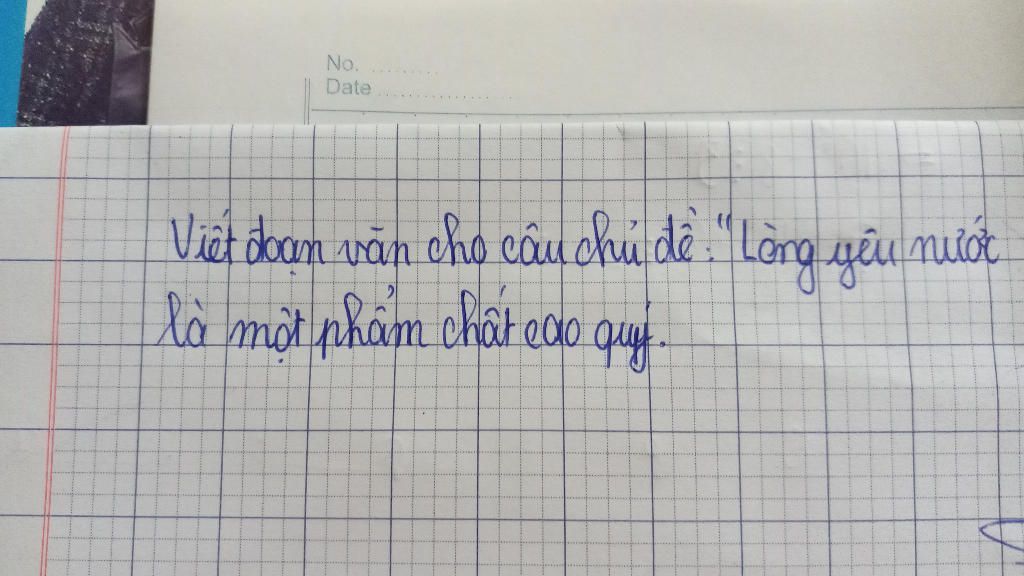 No. .........
Date ..................
Viết đoạn văn cho câu chủ đề: "Lòng yêu nước
là một phẩm chất cao quý.